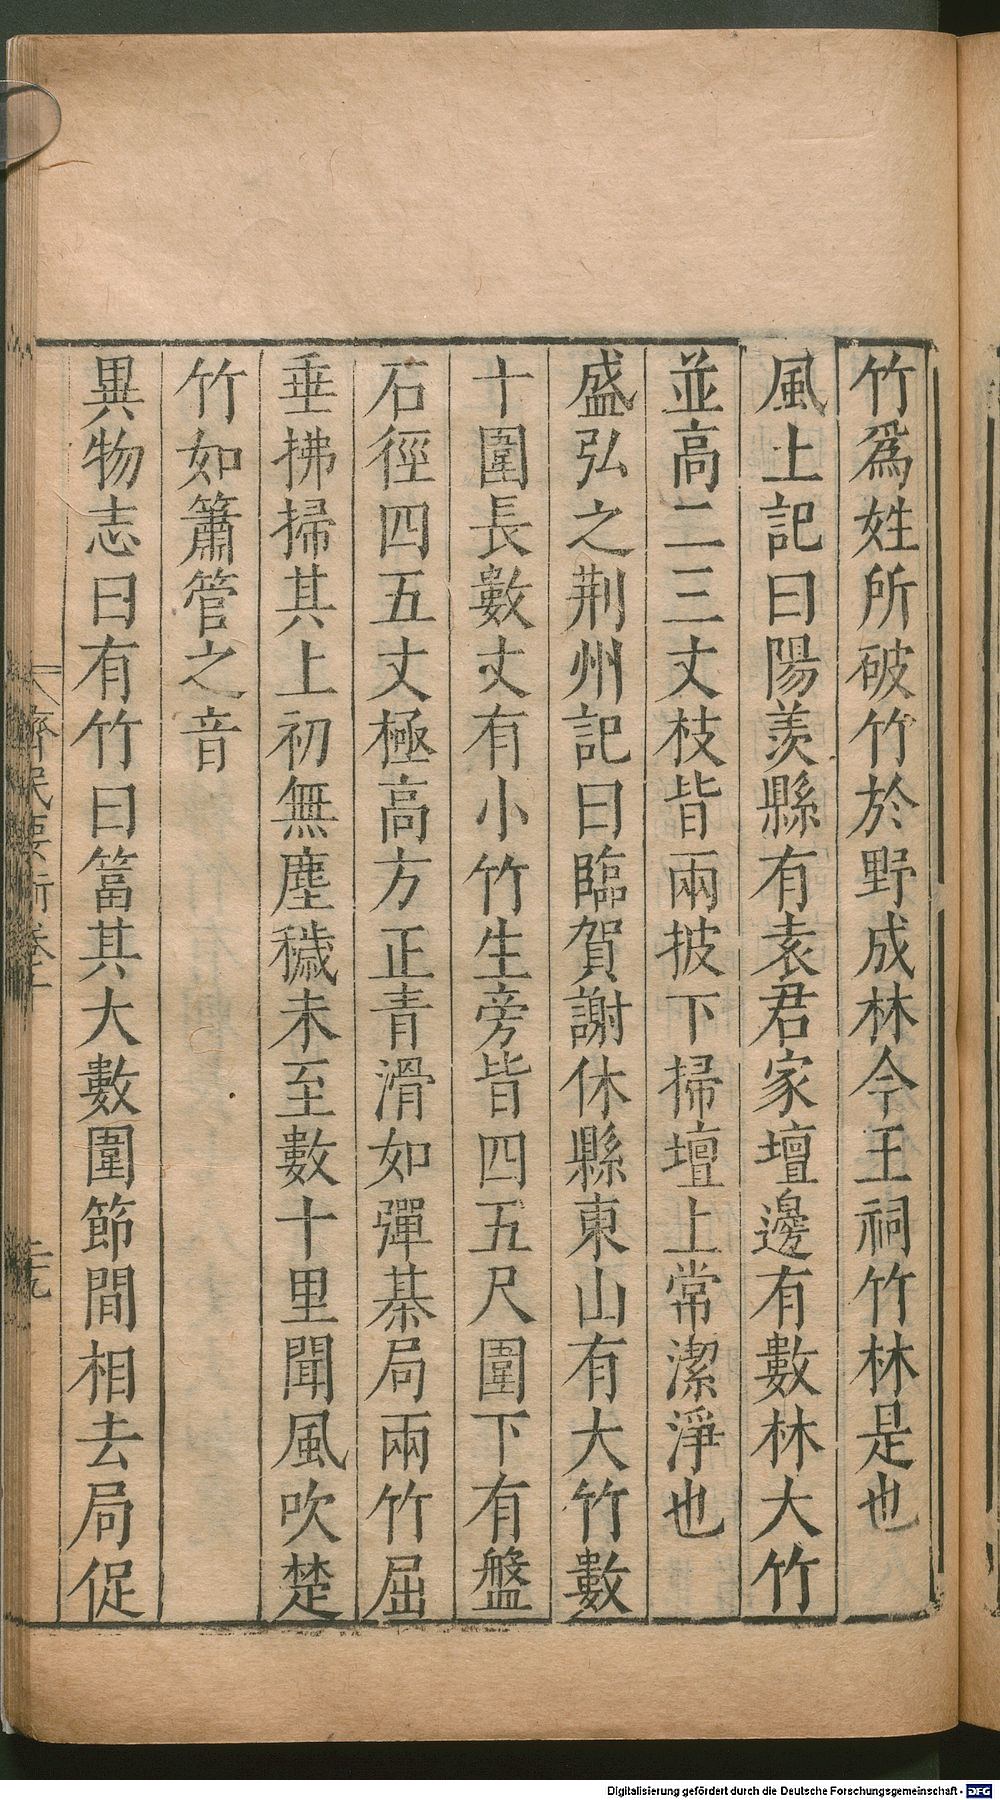 竹爲姓所破竹於野成林今王祠竹林是也
風土記曰陽羨縣有袁君家壇邊有數林大竹
並高二三丈枝皆兩披下掃壇上常潔淨也
盛弘之荆州記曰臨賀謝休縣東山有大竹數
十圍長數丈有小竹生旁皆四五尺圍下有盤
石徑四五丈極高方正青滑如彈棊局兩竹屈
垂拂掃其上初無塵穢未至數十里聞風吹楚
竹如簫管之音
異物志曰有竹曰䈏其大數圍節間相去局促
齊民要術卷十
二十九
Digitalisierung gefördert durch die Deutsche Forschungsgemeinschaft - DFG